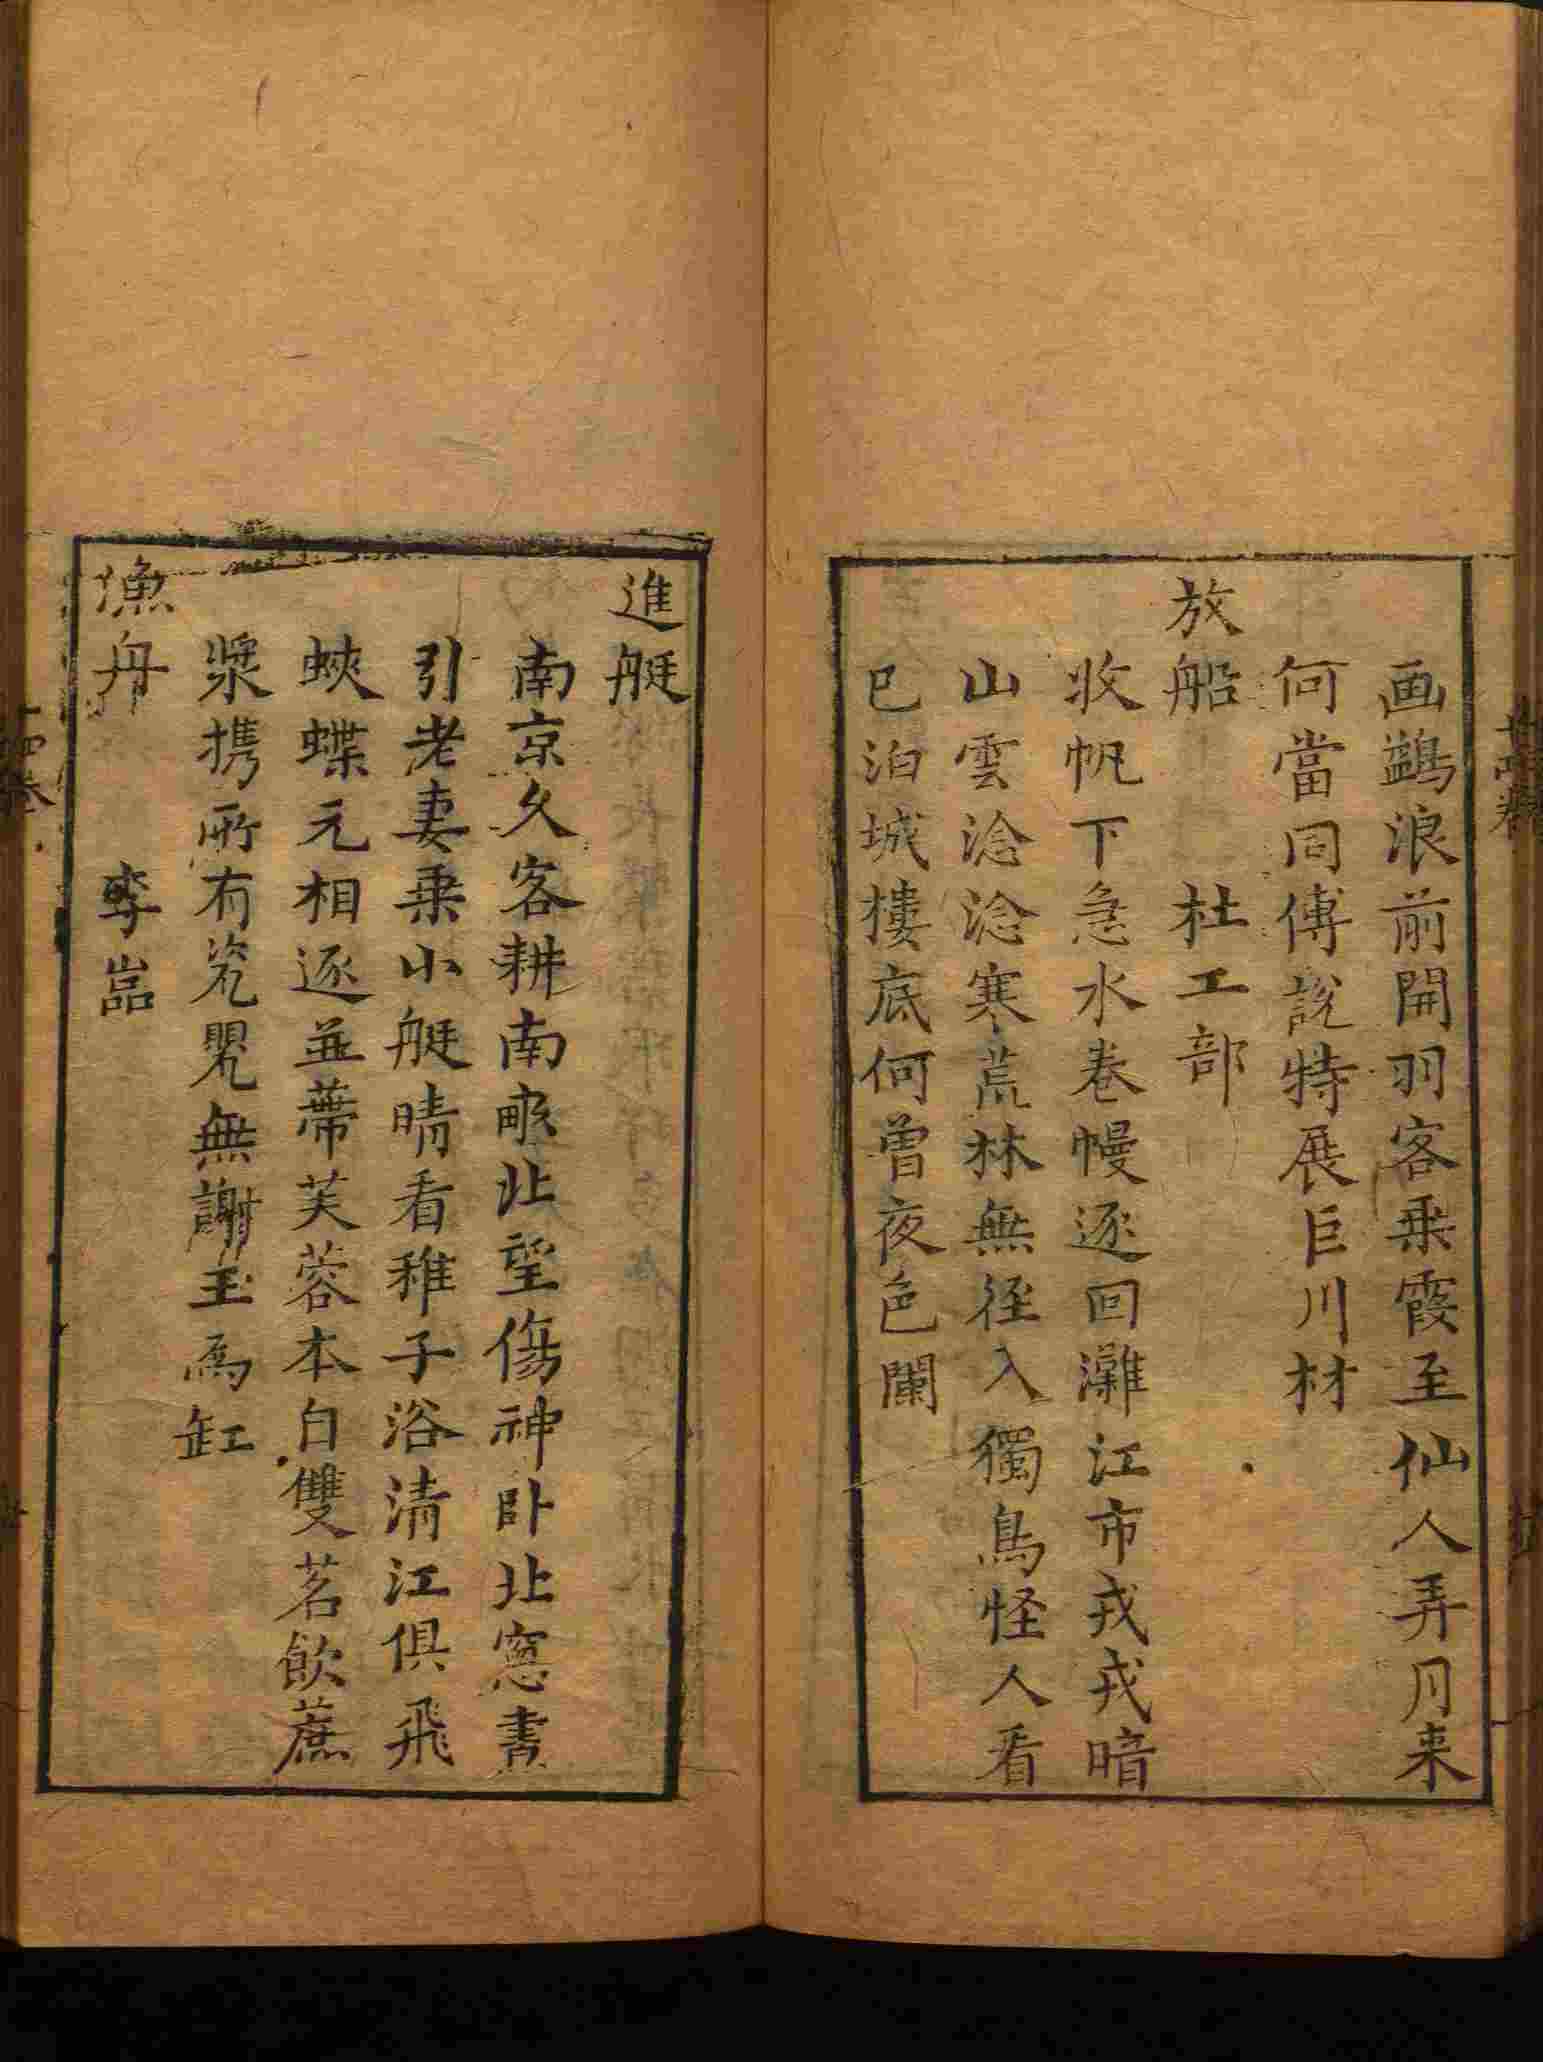 画鷁浪前開羽客乗霞至仙人弄月来
何當同傅說特展巨川材
放船 杜工部
收帆下急水卷幔逐回灘江市戎戎暗
山雲淰淰寒荒林無徑入獨鳥怪人看
已泊城樓底何曾夜色闌
進艇
南京久客耕南畝北望傷神卧北窓書
引老妻乗小艇晴看稚子浴清江俱飛
蛺蝶元相逐並蔕芙蓉本白雙茗飲蔗
漿携所有瓷罌無謝玉為缸
漁舟 李嵓